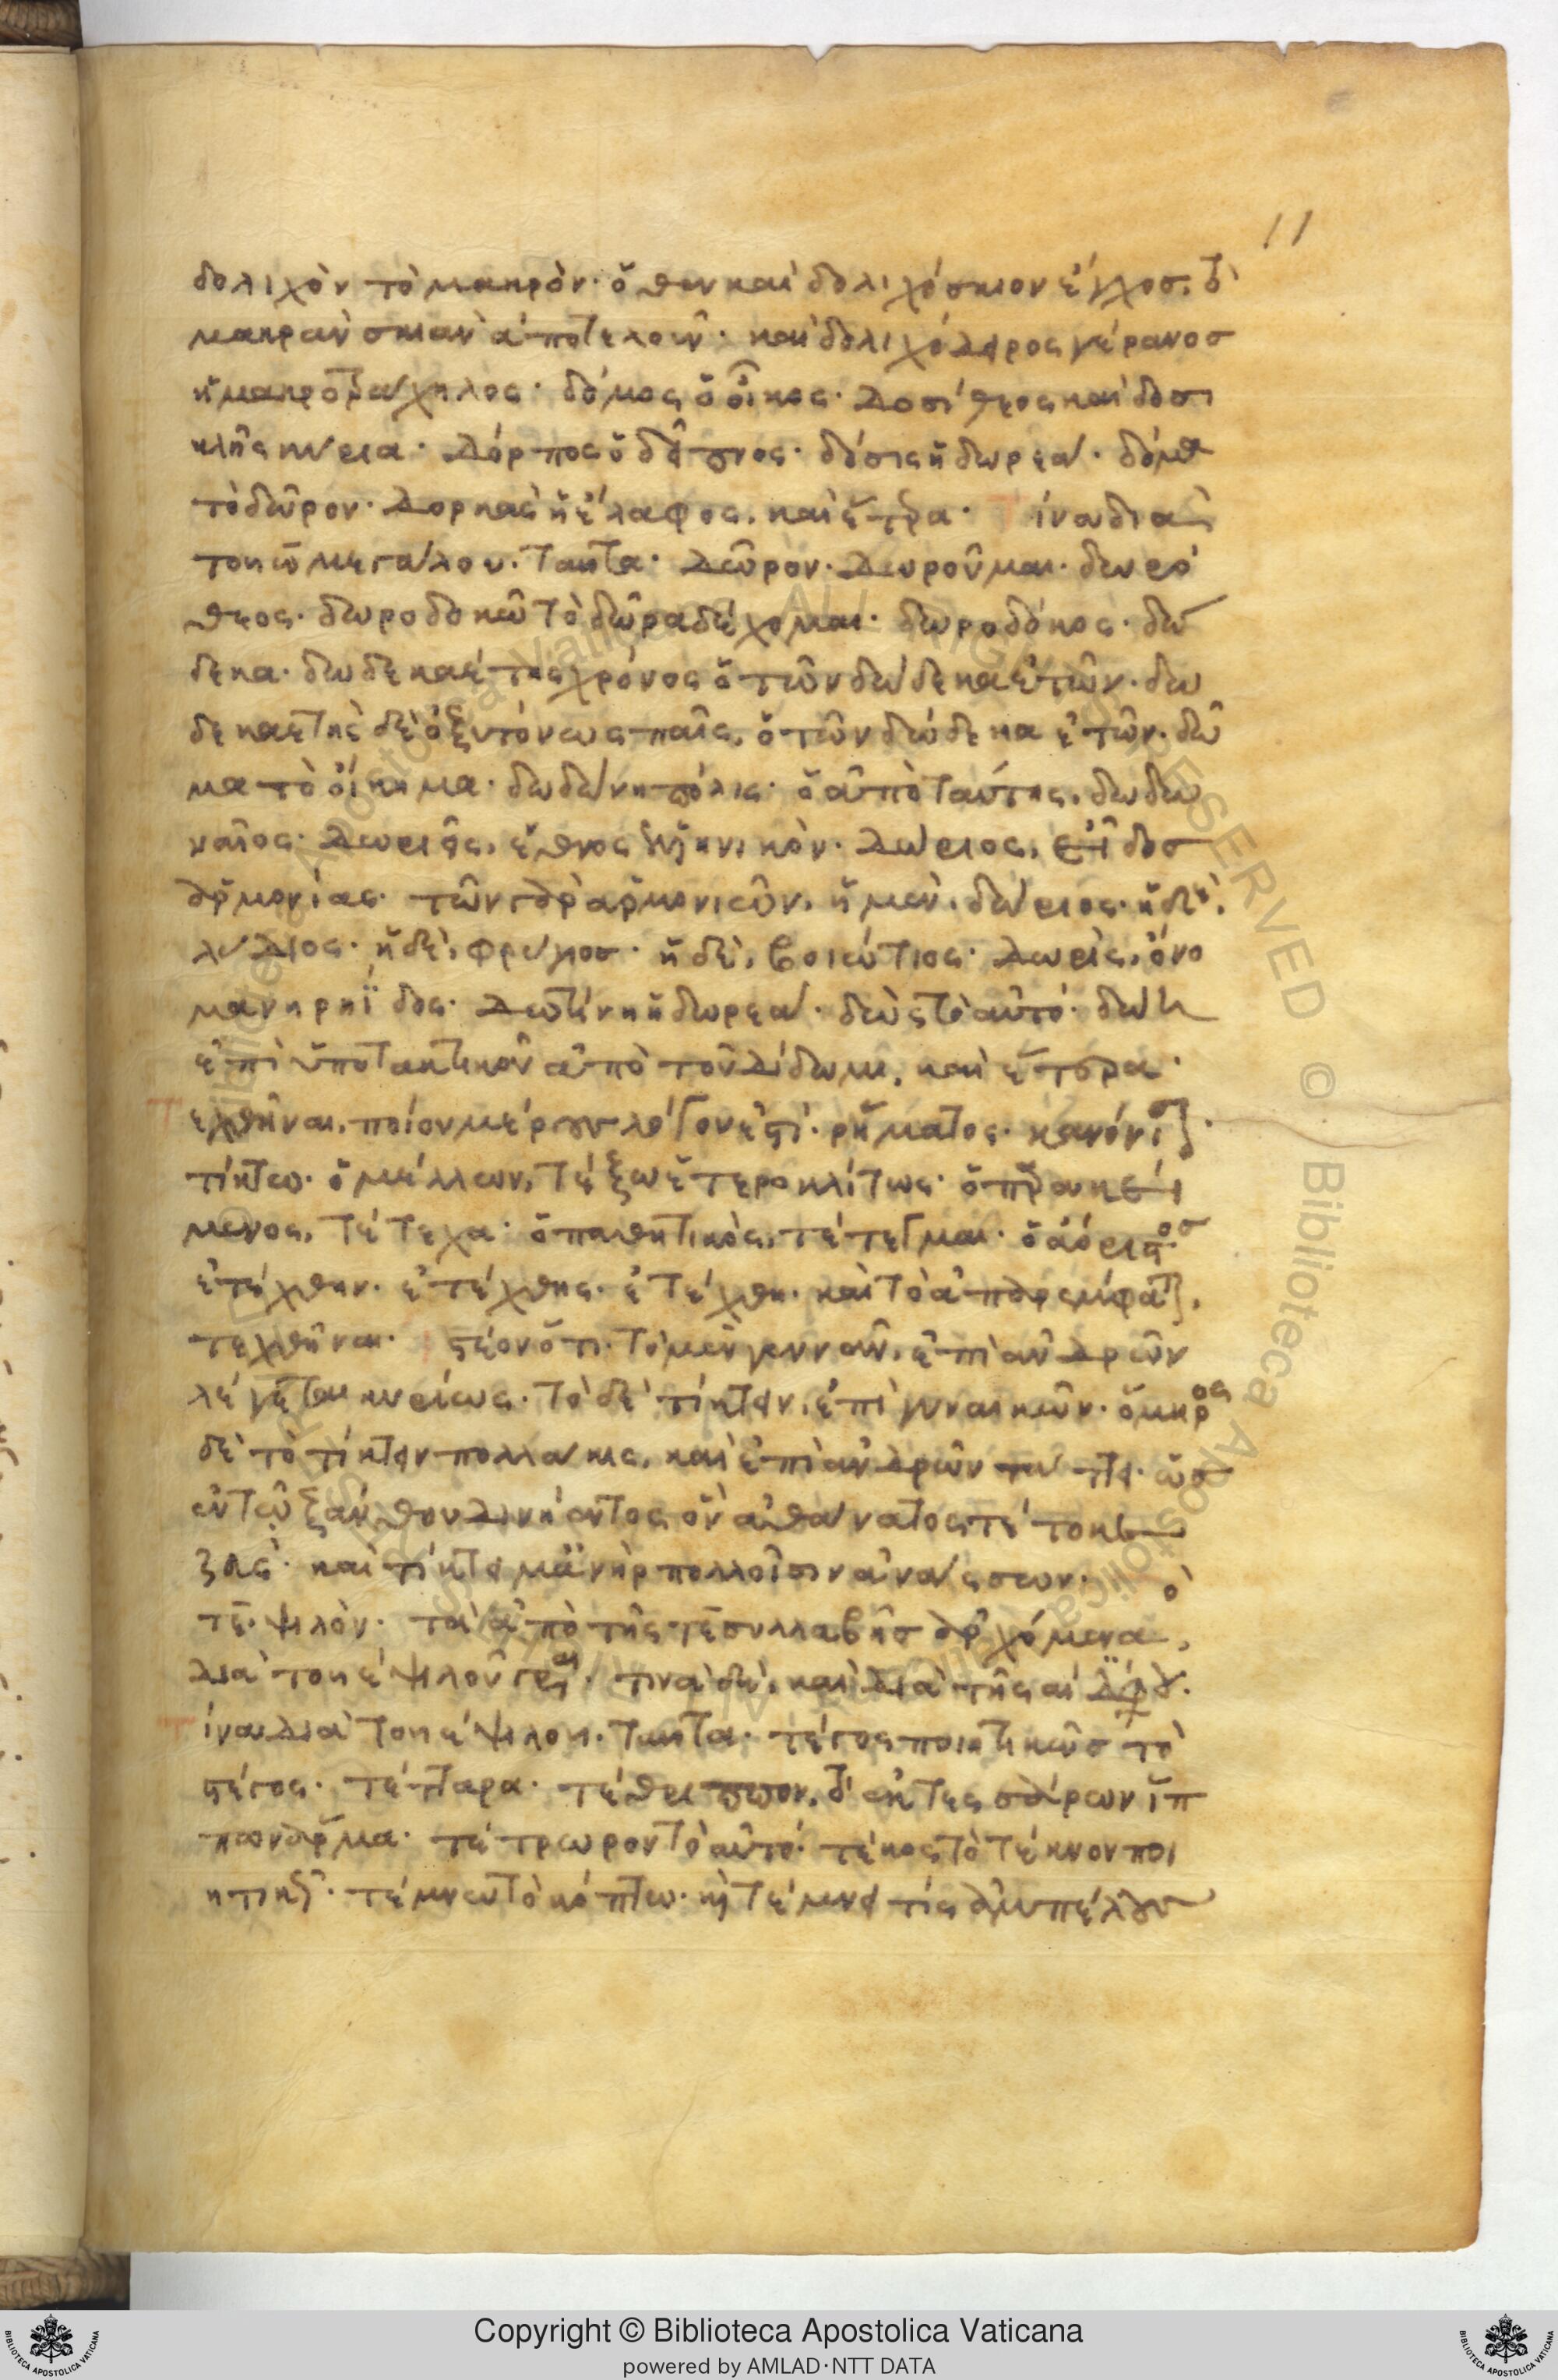 11
δολιχὸν τὸ μακρόν· ὅθεν καὶ δολιχόσκιον ἔγχος, τὸ
μακρὰν σκιὰν ἀποτελοῦν· καὶ δολιχόδειρος γέρανος
ἡ μακροτράχηλος· δόμος ὁ οἶκος· Δοσίθεος καὶ δοσι
κλῆς κύρια· Δόρπος ὁ δεῖπνος· δόσις ἡ δωρεά· δόμα
τὸ δῶρον· Δορκὰς ἡ ἔλαφος, καὶ ἕτερα· τίνα διὰ
τοῦ ω μεγάλου· ταῦτα· Δῶρον· Δωροῦμαι· δωρό
θεος· δωροδοκῶ τὸ δῶρα δέχομαι· δωροδόκος· δώ
δεκα· δωδεκαέτης χρόνος ὁ τῶν δώδεκα ἐτῶν· δω
δεκαετὴς δὲ ὀξυτόνως παῖς, ὁ τῶν δώδεκα ἐτῶν· δῶ
μα τὸ οἴκημα· δωδώνη πόλις· ὁ ἀπὸ ταύτης, δωδω
ναῖος· Δωριεῖς, ἔθνος ἑλληνικόν· Δώριος, εἶδος
ἁρμονίας· τῶν γὰρ ἁρμονιῶν, ἡ μὲν, δώριος· ἡ δὲ,
λύδιος· ἡ δὲ, φρύγιος· ἡ δὲ, βοιώτιος· Δωρὶς, ὄνο
μα νηρηΐδος· Δωτίνη ἡ δωρεά· δὼς τὸ αὐτό· δώῃ
ἐπὶ ὑποτακτικοῦ ἀπὸ τοῦ δίδωμι, καὶ ἕτερα·
Τεχθῆναι, ποίου μέρους λόγου ἐστί· ῥήματος· κανόνισον·
τίκτω· ὁ μέλλων, τέξω ἑτεροκλίτως· ὁ παρακεί
μενος, τέτεχα· ὁ παθητικὸς, τέτεγμαι· ὁ ἀόριστος
ἐτέχθην· ἐτέχθης· ἐτέχθη· καὶ τὸ ἀπαρέμφατον,
τεχθῆναι· ἰστέον ὅτι τὸ μὲν γεννᾶν, ἐπὶ ἀνδρῶν
λέγεται κυρίως· τὸ δὲ τίκτειν, ἐπὶ γυναικῶν· ὅμηρος
δὲ τὸ τίκτειν πολλάκις, καὶ ἐπὶ ἀνδρῶν τάττει· ὡς
ἐν τῷ ξάνθου δινήεντος ὃν ἀθάνατος τέκετο
ζεύς· καὶ τίκτε μ' ἀνὴρ πολλοῖσιν ἀνάσσων·
τε ψιλόν· τὰ ἀπὸ τῆς τε συλλαβῆς ἀρχόμενα,
διὰ τοῦ ε ψιλοῦ γράφεται· τινὰ δὲ, καὶ διὰ τῆς αι διφθόγγου·
Τίνα διὰ τοῦ ε ψιλοῦ· ταῦτα· τέγος ποιητικῶς τὸ
στέγος· τέτταρα· τέθριππον, τὸ ἐκ τεσσάρων ἵπ
πων ἅρμα· τέτρωρον τὸ αὐτό· τέκος τὸ τέκνον ποι
ητικῶς· τέμνω τὸ κόπτω· καὶ τέμνει τὶς ἀμπέλους
Copyright © Biblioteca Apostolica Vaticana
powered by AMLAD·NTT DATA